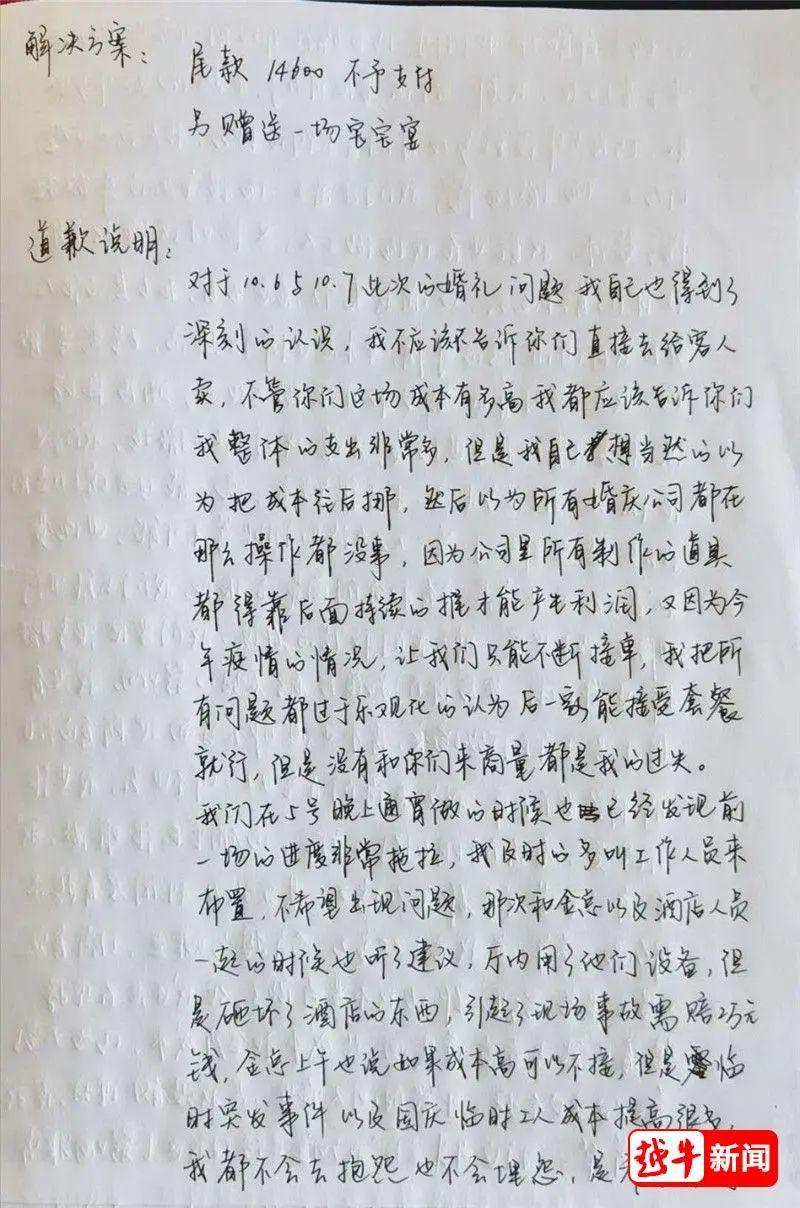 解决方案：
尾款 14600 不予支付
另赠送一场宝宝宴
道歉说明：
对于10.6与10.7此次的婚礼问题 我自己也得到了
深刻的认识，我不应该不告诉你们直接去给客人
卖，不管你们这场成本有多高我都应该告诉你们
我整体的支出非常多，但是我自己想当然的以
为把成本往后挪，然后以为所有婚庆公司都在
那么操作都没事，因为公司里所有制作的道具
都得靠后面持续的推才能产生利润，又因为今
年疫情的情况，让我们只能不断接单，我把所
有问题都过于乐观化的认为后一家能接受套餐
就行，但是没有和你们来商量都是我的过失。
我们在5号晚上通宵做的时候也已经发现前
一场的进度非常拖拉，我及时的多叫工作人员来
布置，不希望出现问题，那次和金总以及酒店人员
一起的时候也听了建议，厅内用了他们设备，但
是砸坏了酒店的东西，引起了现场事故需赔2万元
钱，金总上午也说如果成本高可以不接，但是临
时突发事件以及国庆临时工人成本提高很多，
我都不会去抱怨也不会埋怨，是
越牛新闻